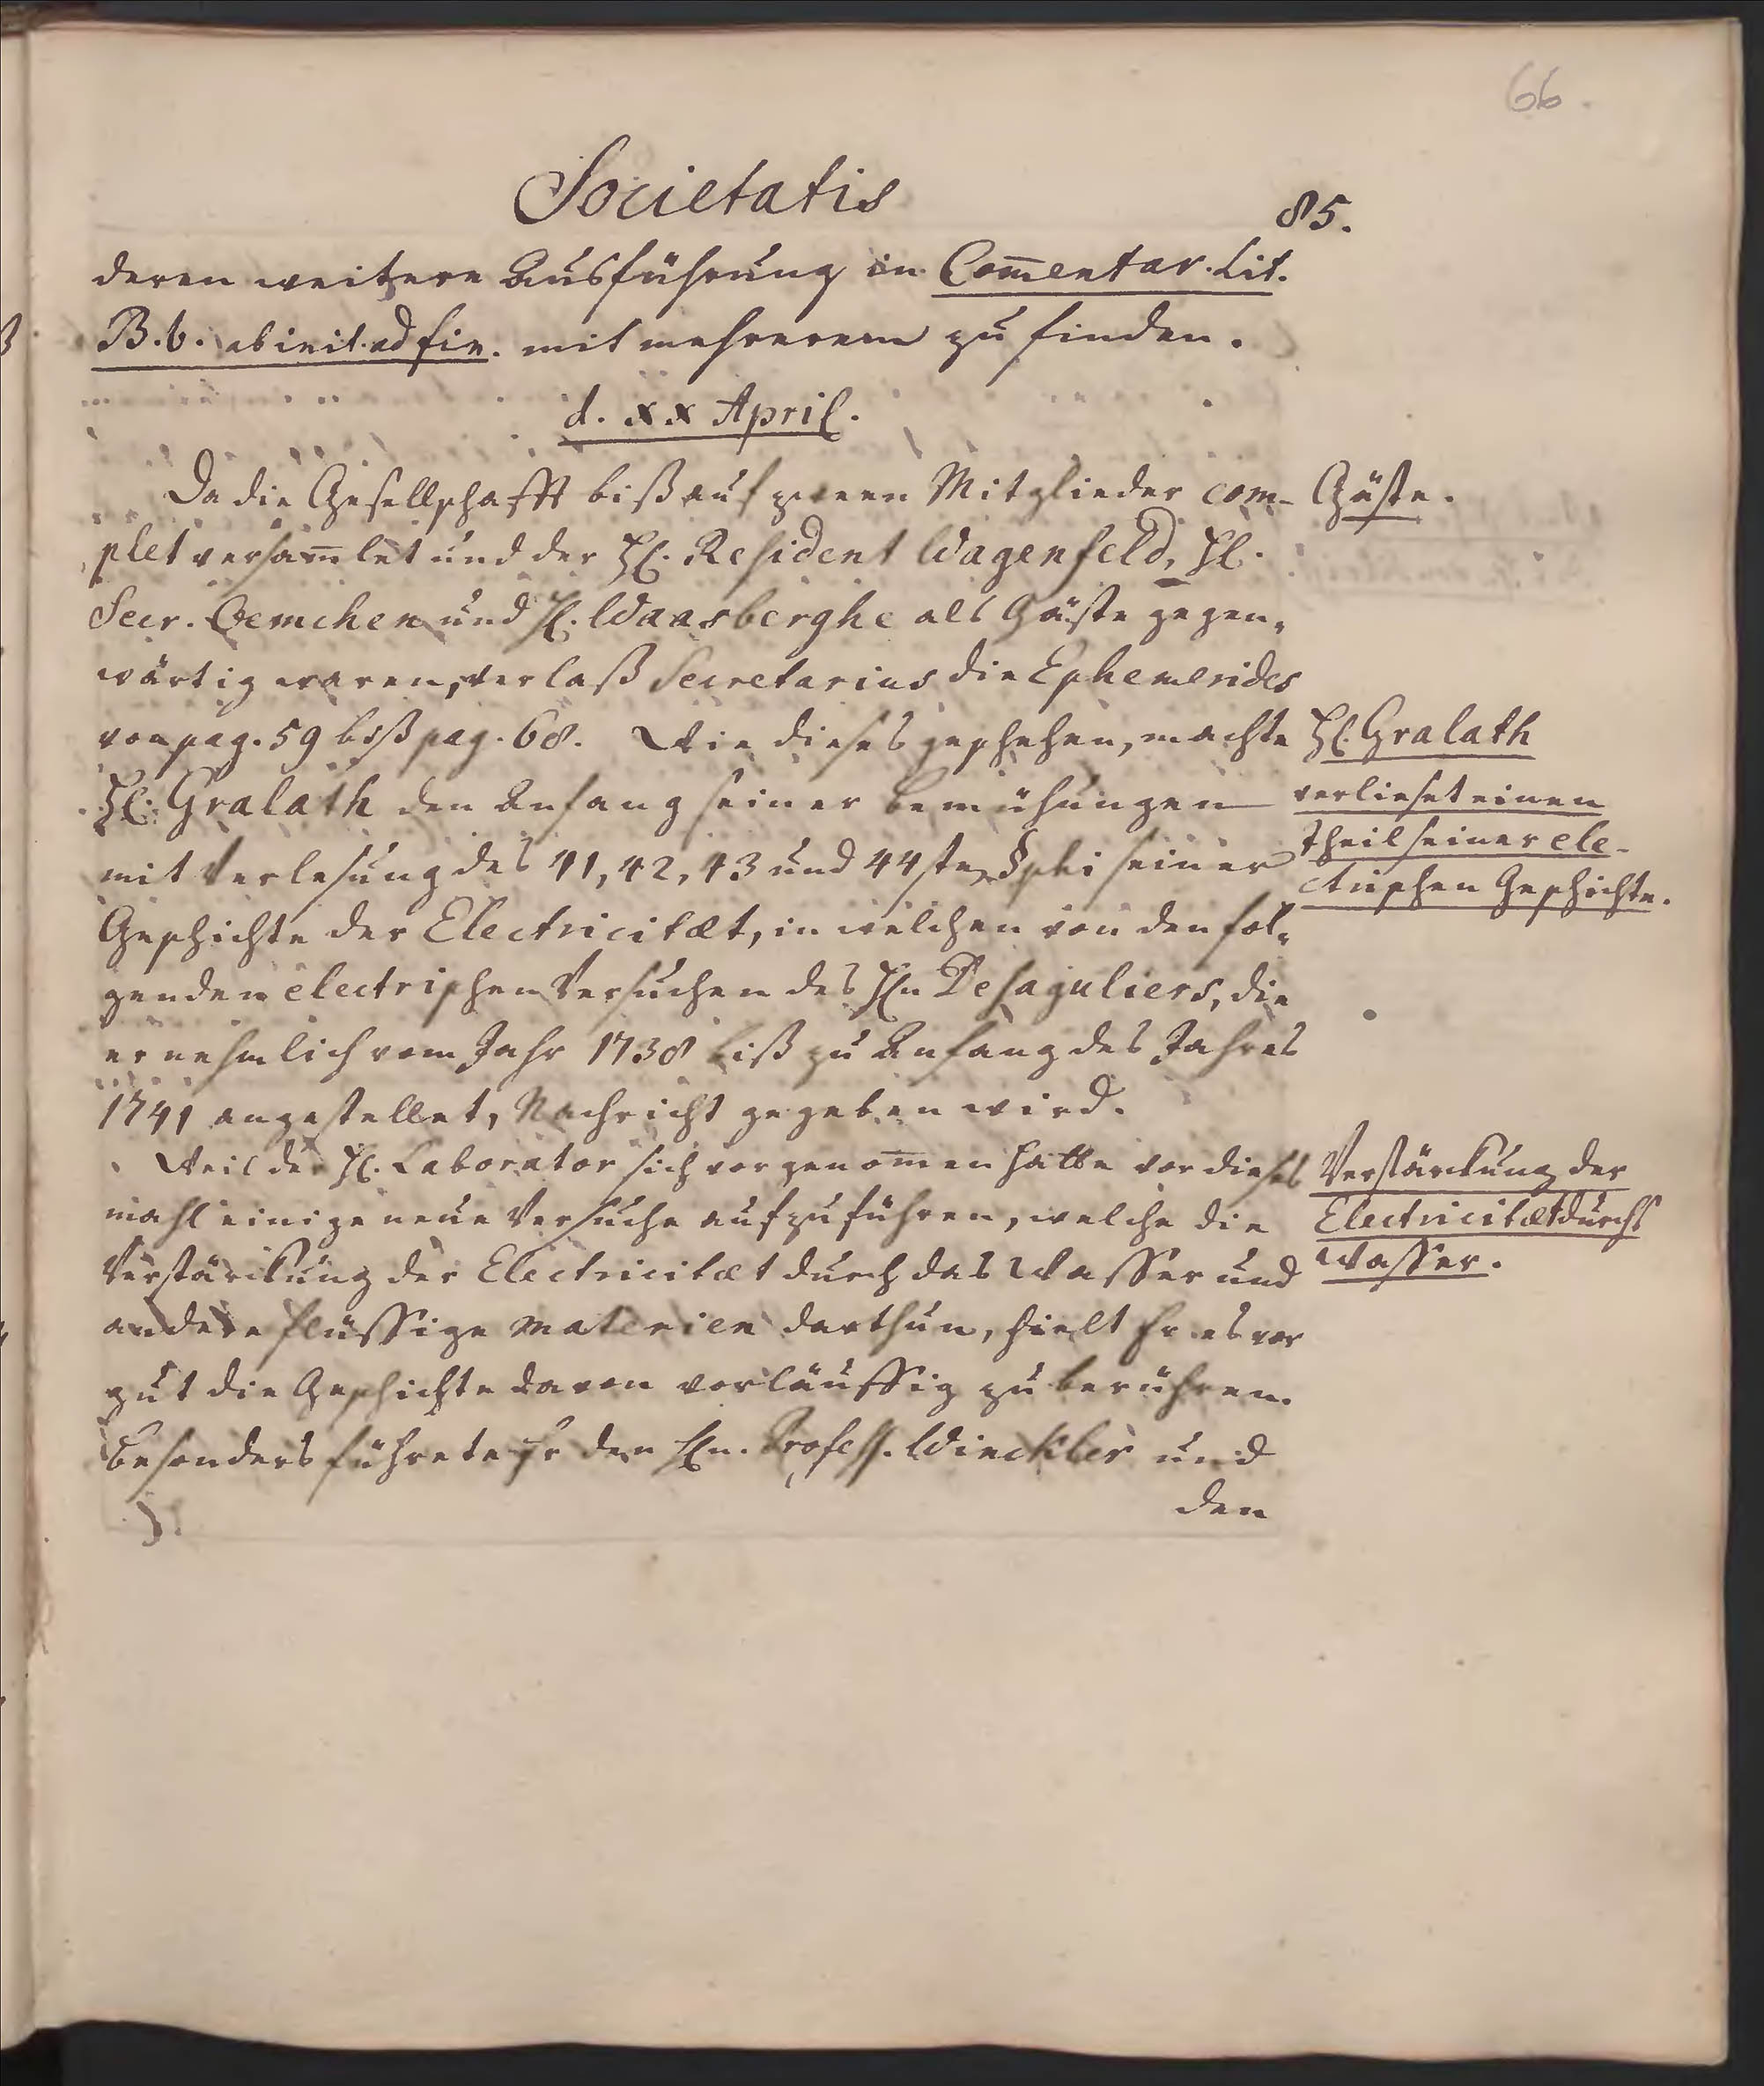 66.
Societatis
85.
deren weitere Ausführung in Com̅entar. Lit.
B. b. ab init. ad fin. mit mehrerem zu finden.
d. xx April.
Da die Gesellschafft biß auf zween Mitglieder com-
plet versam̅let und der H. Resident Wagenfeld, H.
Secr. Oemchen und H. Waasberghe als Gäste gegen-
wärtig waren, verlaß Secretarius die Ephemerides
von pag. 59 biß pag. 68. Wie dieses geschehen, machte
H. Gralath den Anfang seiner Bemühungen
mit Verlesung des 41, 42, 43 und 44sten §phi seiner
Geschichte der Electricitæt, in welchen von den fol-
genden electrischen Versuchen des Hn Desaguliers, die
er nehmlich vom Jahr 1738 biß zu Anfang des Jahres
1741 angestellet, Nachricht gegeben wird.
Weil der H. Laborator sich vorgenom̅en hatte vor dieses
mahl einige neue Versuche aufzuführen, welche die
Verstärckung der Electricitæt durch das Wasser und
andere flüssige Materien darthun, hielt Er es vor
gut die Geschichte davon vorläuffig zu berühren.
Besonders führete Er den Hn. Profess. Winckler und
den
Gäste.
H. Gralath
verlieset einen
Theil seiner ele-
ctrischen Geschichte.
Verstärckung der
Electricitæt durchs
Wasser.